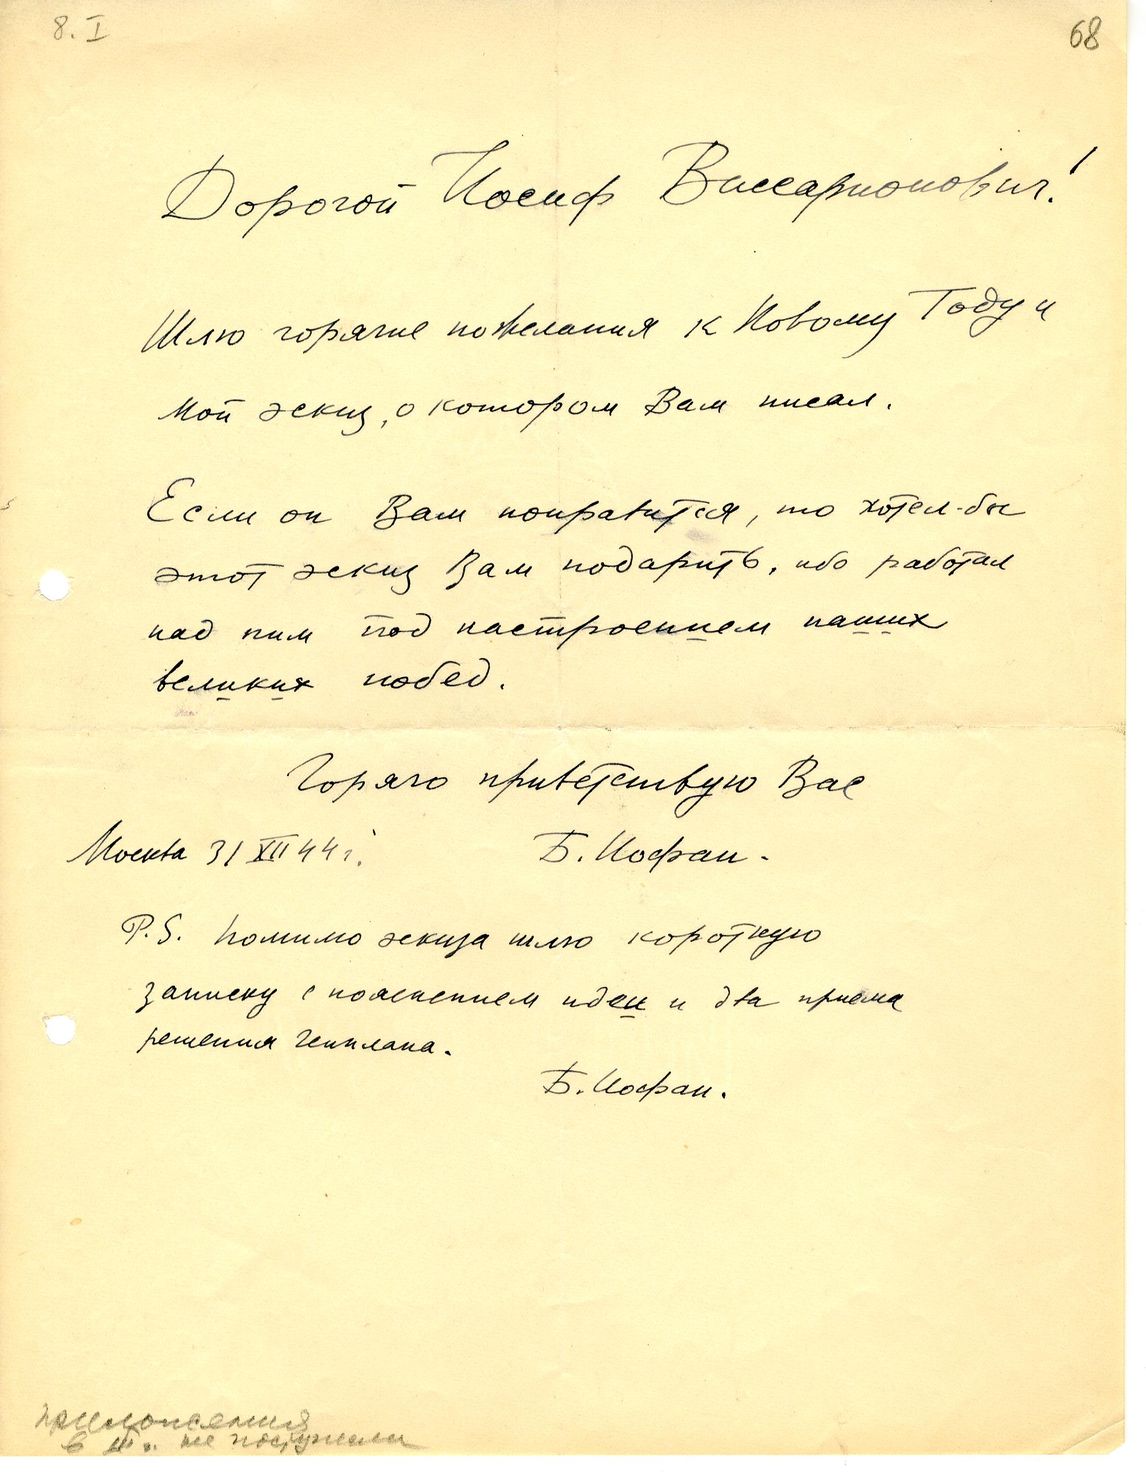 8. I
68
Дорогой Иосиф Виссарионович!
Шлю горячие пожелания к Новому Году и
мой эскиз, о котором Вам писал.
Если он Вам понравится, то хотел-бы
этот эскиз Вам подарить, ибо работал
над ним под настроением наших
великих побед.
Горячо приветствую Вас
Москва 31 XII 44 г.
Б. Иофан.
P.S. Помимо эскиза шлю короткую
записку с пояснением идеи и два приема
решения генплана.
Б. Иофан.
приложения
в не поступали